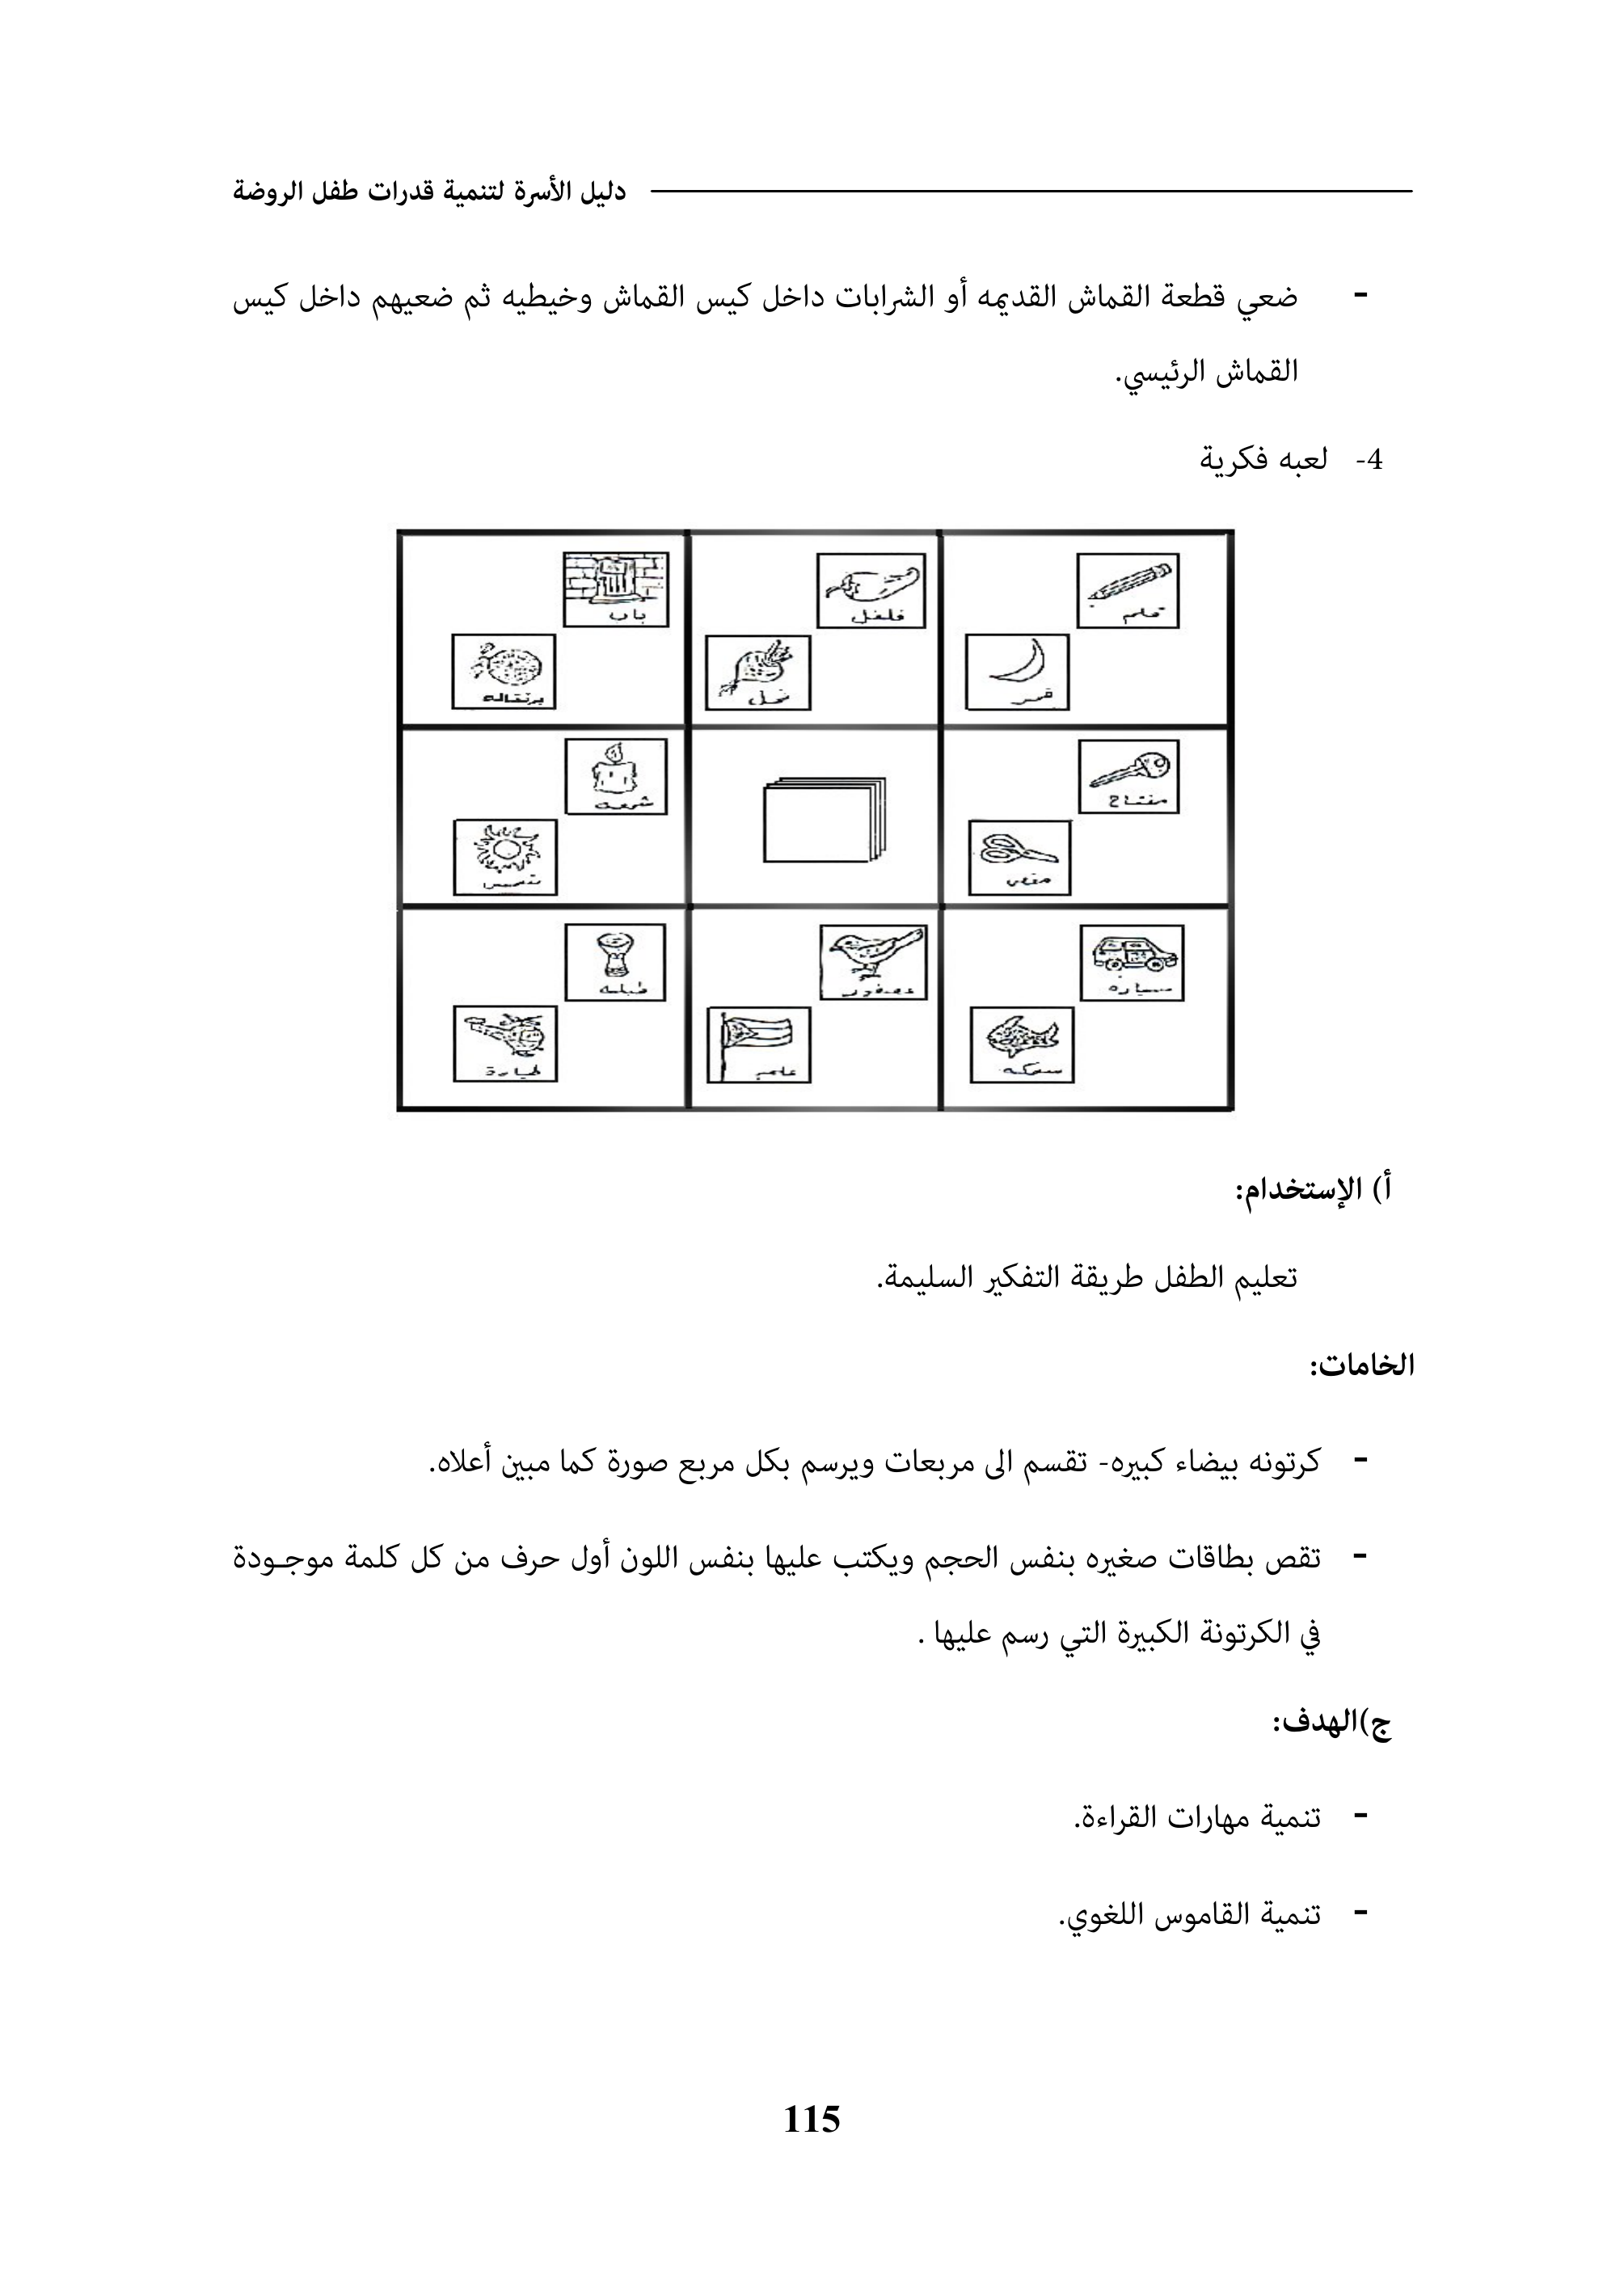 دليل الأسرة لتنمية قدرات طفل الروضة
- ضعي قطعة القماش القديمه أو الشرابات داخل كيس القماش وخيطيه ثم ضعيهم داخل كيس
القماش الرئيسي.
4- لعبه فكرية
قلم
قمر
فلفل
فجل
باب
برتقاله
مفتاح
مقص
شمعه
شمس
سياره
سمكه
عصفور
علم
طبله
طيارة
أ) الإستخدام:
تعليم الطفل طريقة التفكير السليمة.
الخامات:
- كرتونه بيضاء كبيره- تقسم الى مربعات ويرسم بكل مربع صورة كما مبين أعلاه.
- تقص بطاقات صغيره بنفس الحجم ويكتب عليها بنفس اللون أول حرف من كل كلمة موجـودة
في الكرتونة الكبيرة التي رسم عليها .
ج)الهدف:
- تنمية مهارات القراءة.
- تنمية القاموس اللغوي.
115